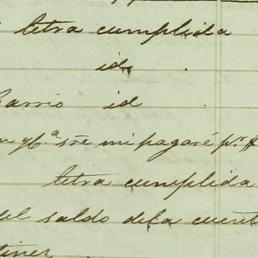 letra cumplida
id
Carrió id
mi pagaré pr. #
letra cumplida
saldo de la cuent
tinez